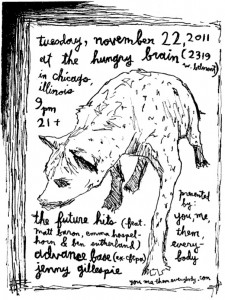 tuesday, november 22, 2011
at the hungry brain (2319
w. belmont)
in chicago,
illinois
9pm
21+
the future hits (feat.
matt baron, emma hospel-
horn & ben sutherland)
advance base (ex-cftpa)
jenny gillespie
presented
by:
you, me,
them,
every
body
you me them everybody.com